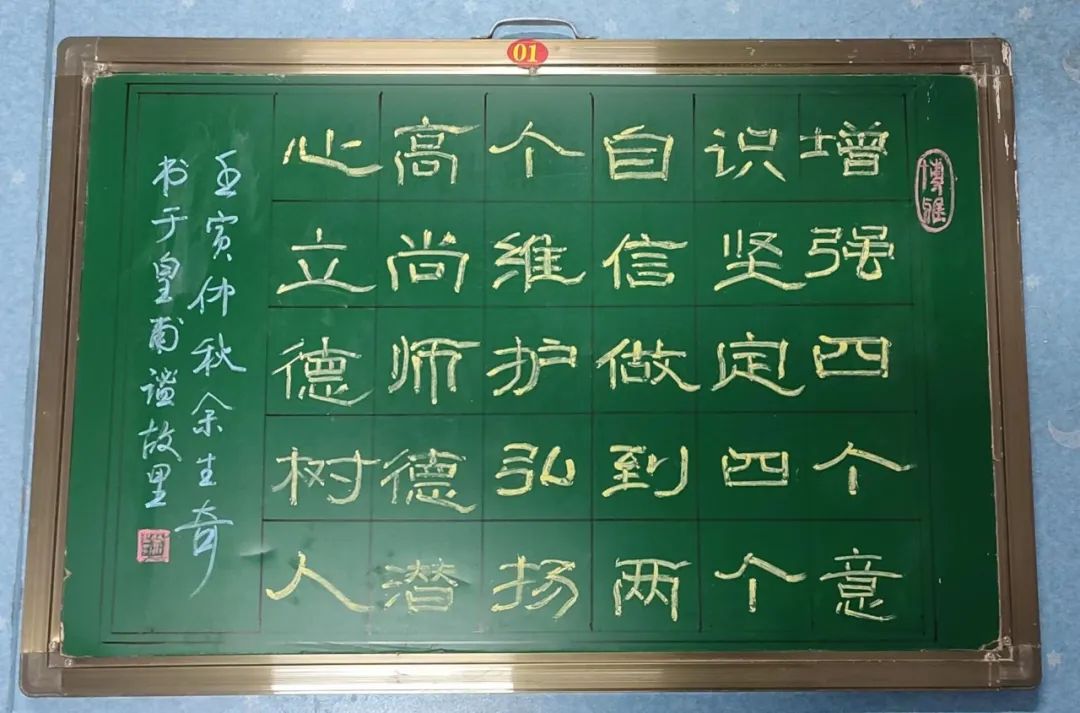 01
博雅
增强四个意
识坚定四个
自信做到两
个维护弘扬
高尚师德潜
心立德树人
壬寅仲秋余生奇
书于皇甫谧故里